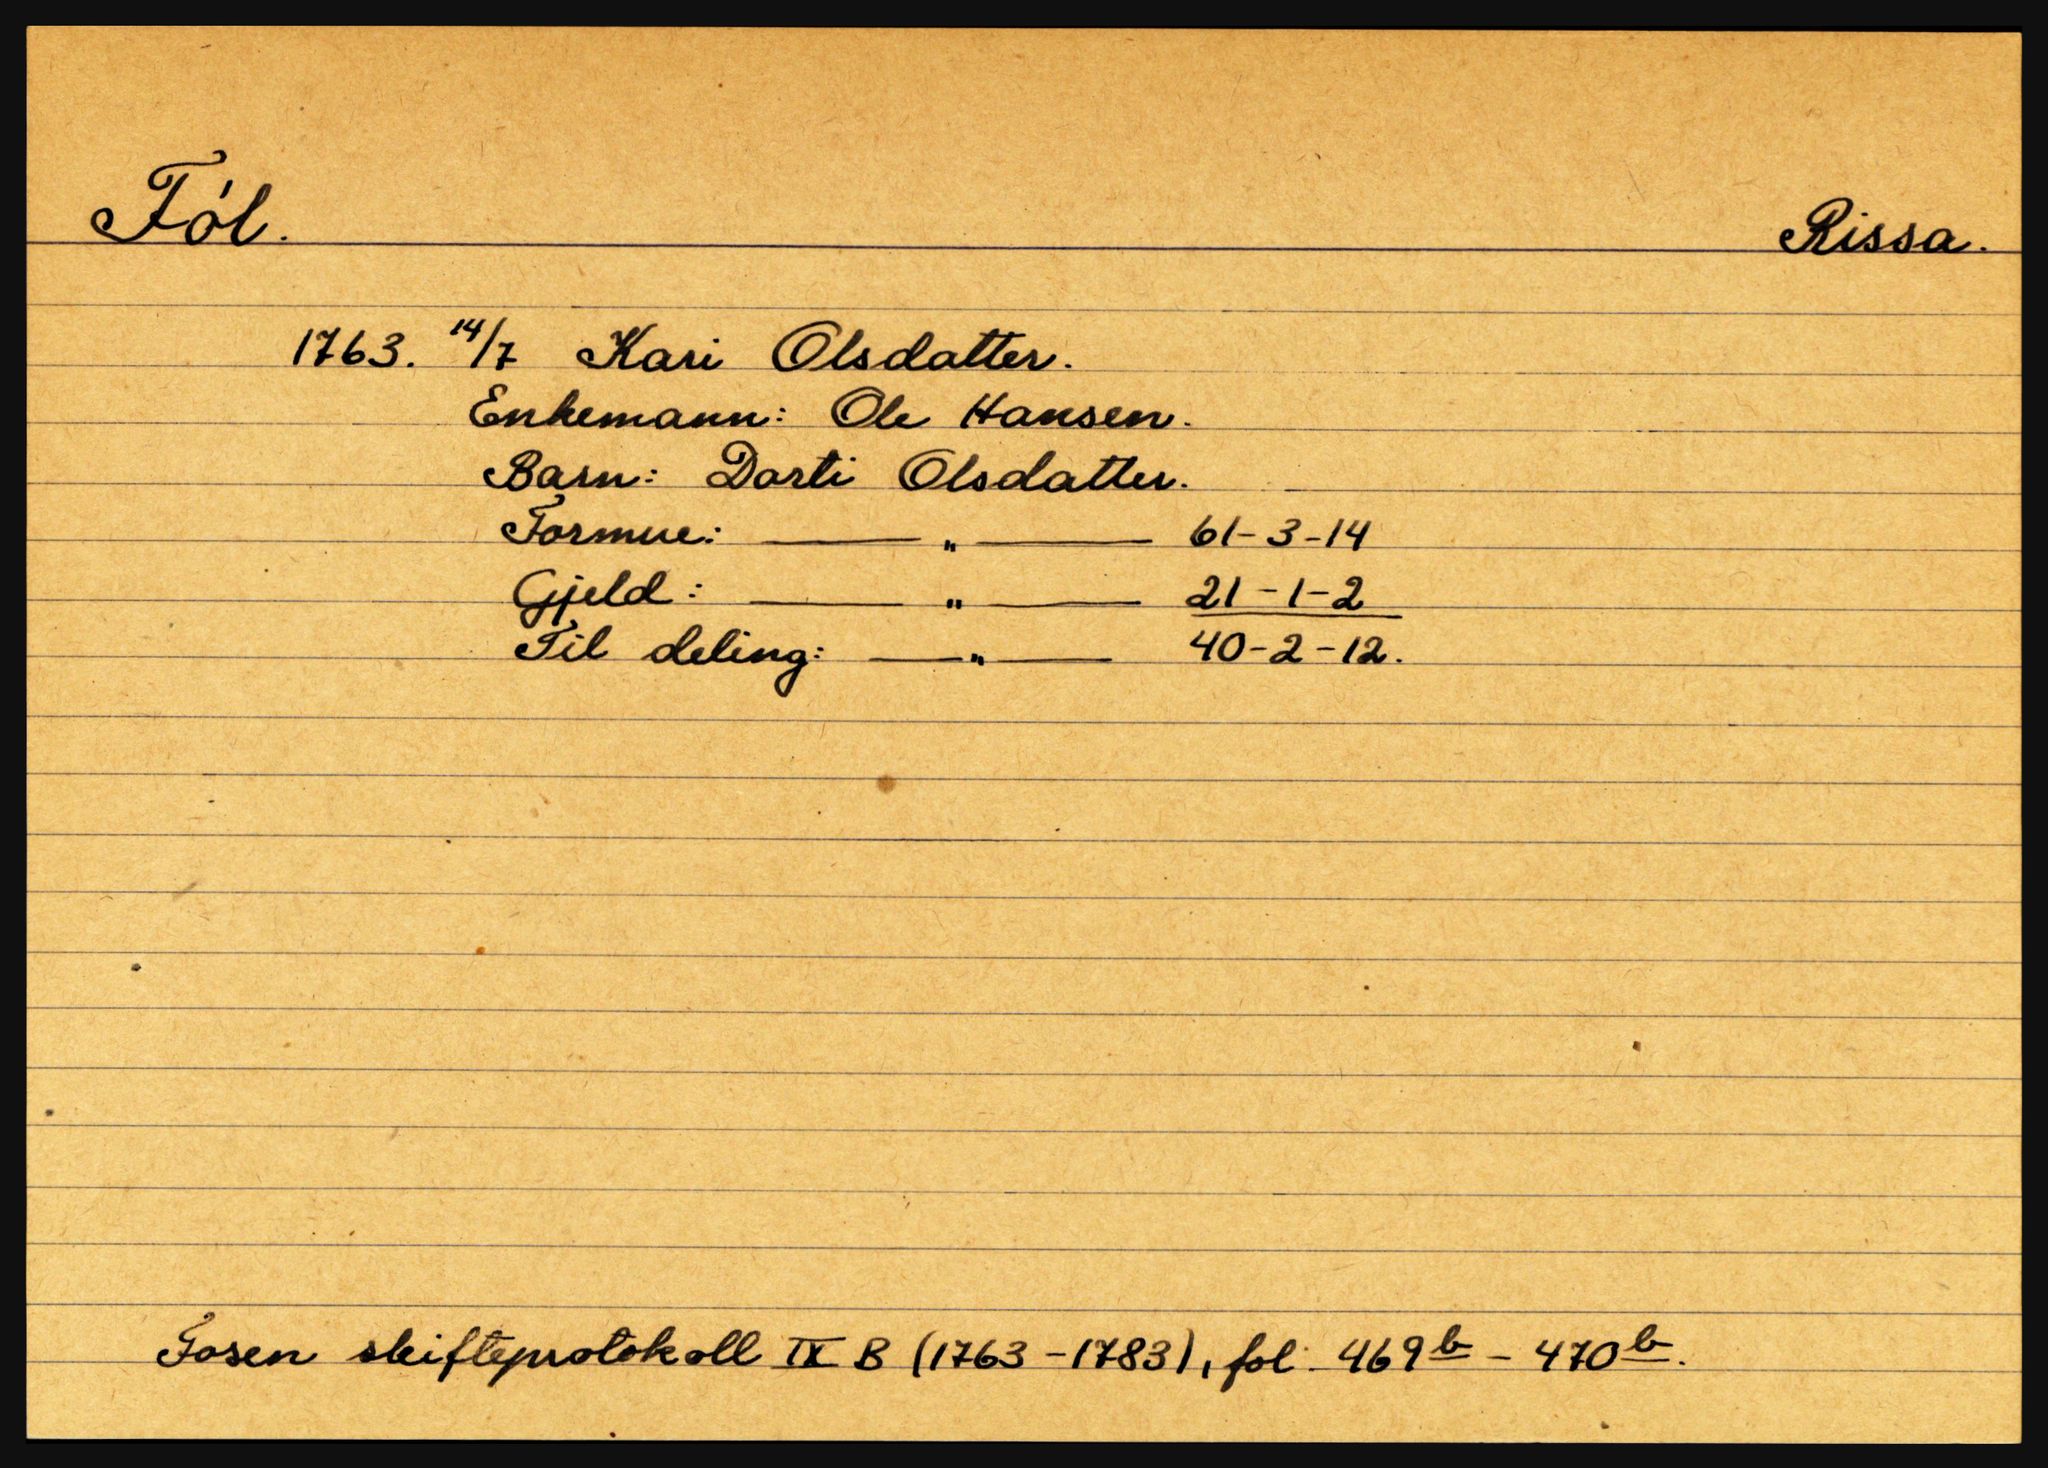 Fól. Rissa.
1763. 14/7 Kari Olsdatter.
Enkemann: Ole Hansen.
Barn: Dorti Olsdatter.
Formue: — " — 61-3-14
Gjeld: — " — 21-1-2
Til deling: — " — 40-2-12.
Fosen skifteprotokoll IX B (1763-1783), fol. 469b - 470b.